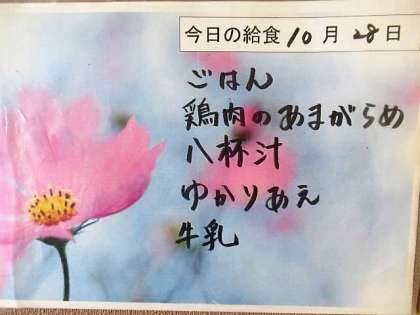 今日の給食10月28日
ごはん
鶏肉のあまがらめ
八杯汁
ゆかりあえ
牛乳